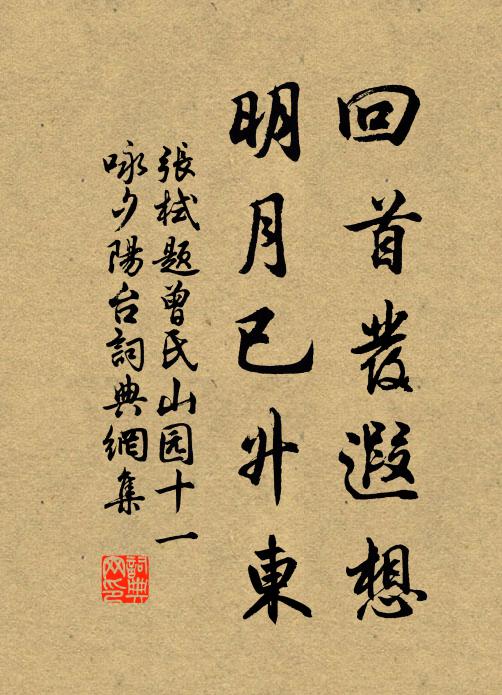 回首發遐想
明月已升東
張栻題曾氏山园十一
咏夕陽台詞典網集
詞典网印